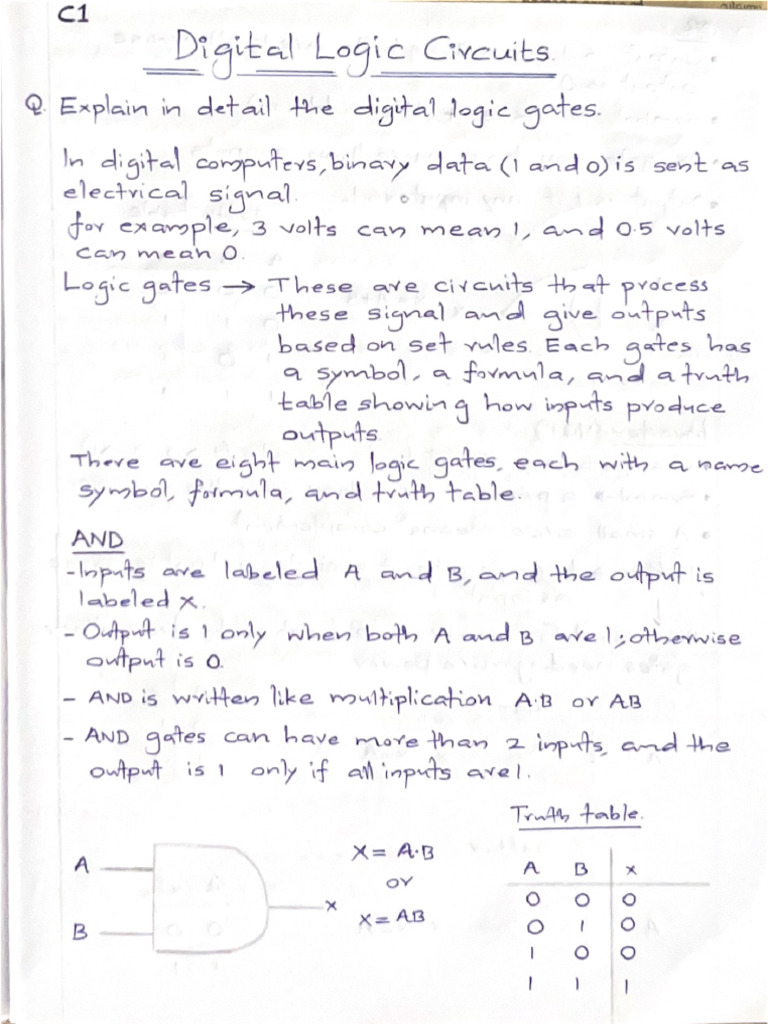 C1
Digital Logic Circuits.
Q. Explain in detail the digital logic gates.
In digital computers, binary data (1 and 0) is sent as
electrical signal.
for example, 3 volts can mean 1, and 0.5 volts
can mean 0.
Logic gates → These are circuits that process
these signal and give outputs
based on set rules. Each gates has
a symbol, a formula, and a truth
table showing how inputs produce
outputs.
There are eight main logic gates, each with a name
symbol, formula, and truth table.
AND
- Inputs are labeled A and B, and the output is
labeled x.
- Output is 1 only when both A and B are 1; otherwise
output is 0.
- AND is written like multiplication A.B or AB
- AND gates can have more than 2 inputs, and the
output is 1 only if all inputs are 1.
Truth table.
A
B
x
X = A.B
or
X = AB
A B x
0 0 0
0 1 0
1 0 0
1 1 1